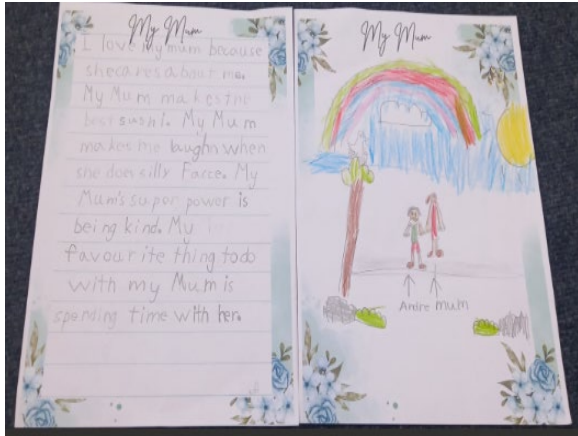 My Mum
I love my mum because
she cares about me.
My Mum makes the
best sushi. My Mum
makes me laughn when
she does silly Facce. My
Mum's super power is
being kind. My
favourite thing to do
with my Mum is
spending time with her.
My Mum
Andre mum